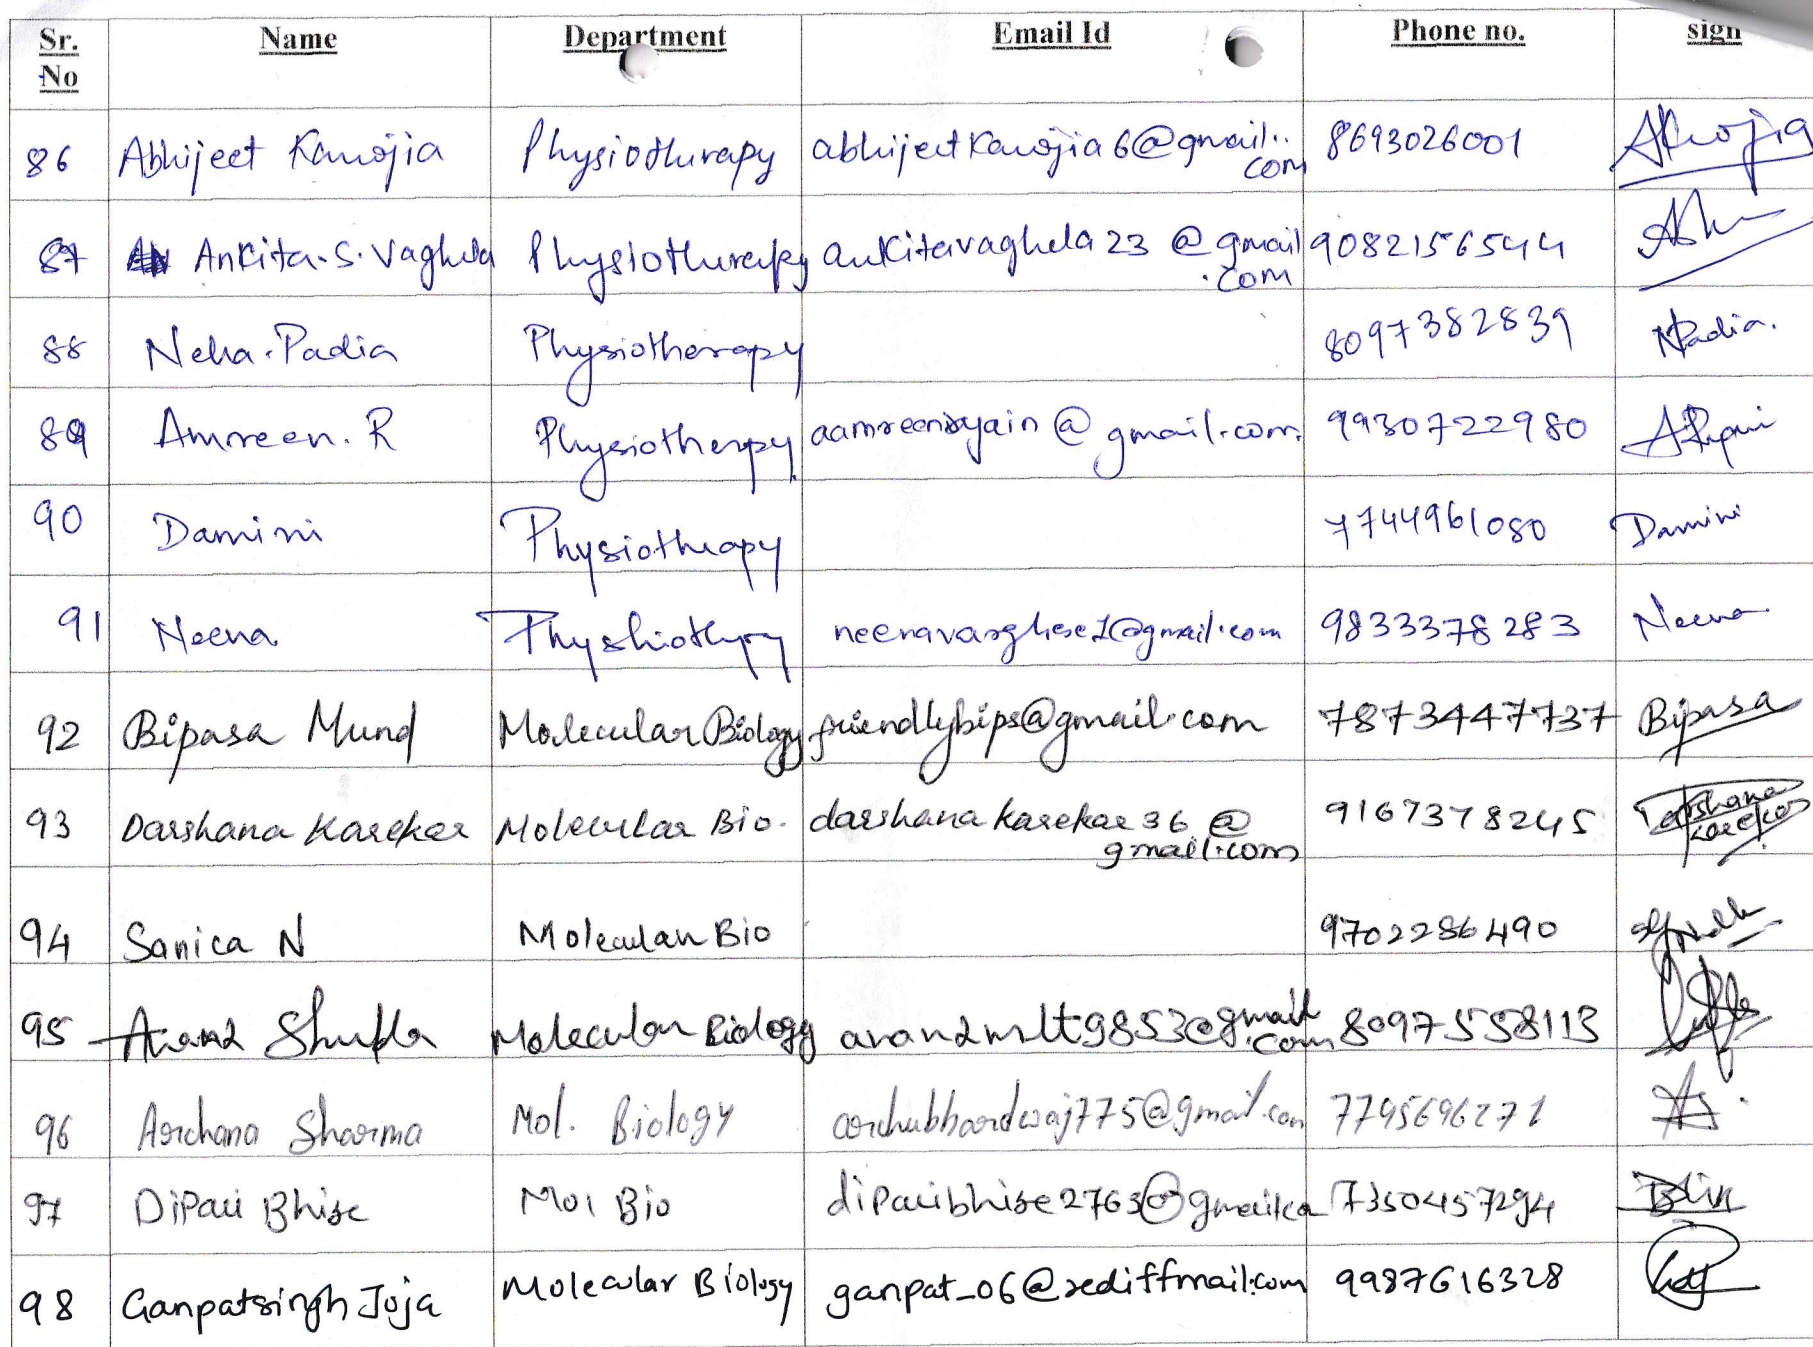 Sr. No Name Department Email Id Phone no. sign
86 Abhijeet Kanojia Physiotherapy abhijeetkanojia6@gmail..com 8693026001
87 Ankita.S.Vaghela Physiotherapy ankitavaghela23@gmail.com 9082156544
88 Neha.Padia Physiotherapy 8097382839 NPadia.
89 Amreen.R Physiotherpy @gmail.com. 9930722980
90 Damini Physiotheapy 7744961080 Damini
91 Neena Physhiothpy neenavarghese1@gmail.com 9833378283 Neena
92 Bipasa Mund Molecular Biology friendlybips@gmail.com 7873447737 Bipasa
93 Darshana Karekar Molecular Bio. darshanakarekar36@gmail.com 9167378245 Darshana Karekar
94 Sanica N Molecular Bio 9702286490
95 Anand Shukla Molecular Biology anandmlt9853@gmail.com 8097558113
96 Archana Sharma Mol. Biology archubhardwaj775@gmail.com 7795696271
97 Dipali Bhise Mol Bio 7350457294
98 Ganpatsingh Joja Molecular Biology ganpat_06@rediffmail.com 9987616328